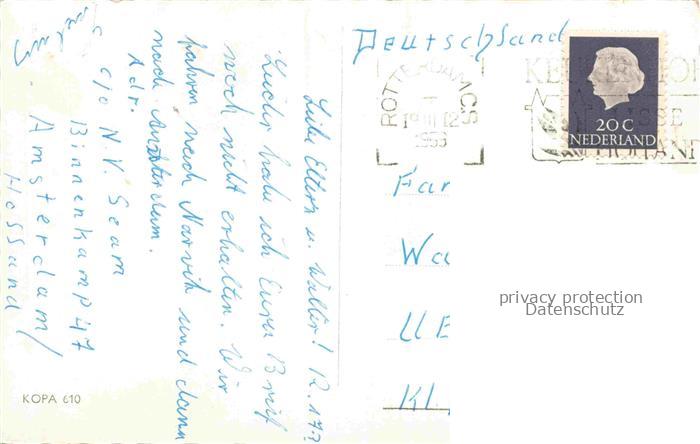 Liebe Eltern u. Walter! R. 17.?
Leider habe ich Euren Brief
noch nicht erhalten. Wir
fahren nach Narvik und dann
nach Amsterdam.
Adr.
c/o N. V. Seam
Binnenkamp 47
Amsterdam/
Holland
Deutschland
ROTTERDAM CS
1963
20 C
NEDERLAND
Far
Wa
Kl.
privacy protection
Datenschutz
KOPA 610